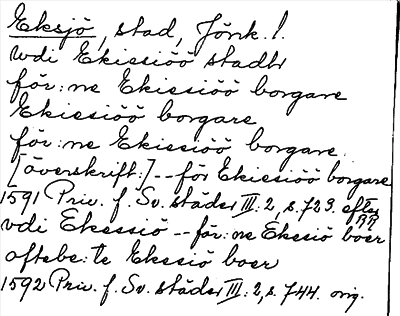 Eksjö, stad, Jönk. l.
vdi Ekiesiöö stadh
för:ne Ekiesiöö borgare
Ekiesiöö borgare
för:ne Ekiesiöö borgare
[överskrift:] -- för Ekiesiöö borgare
1591 Priv. f. Sv. städer III:2, s. 729. efter
vdi Ekessiö -- för:ne Ekesiö boer
oftebe:te Ekesiö boer
1592 Priv. f. Sv. städer III:2, s. 744. orig.